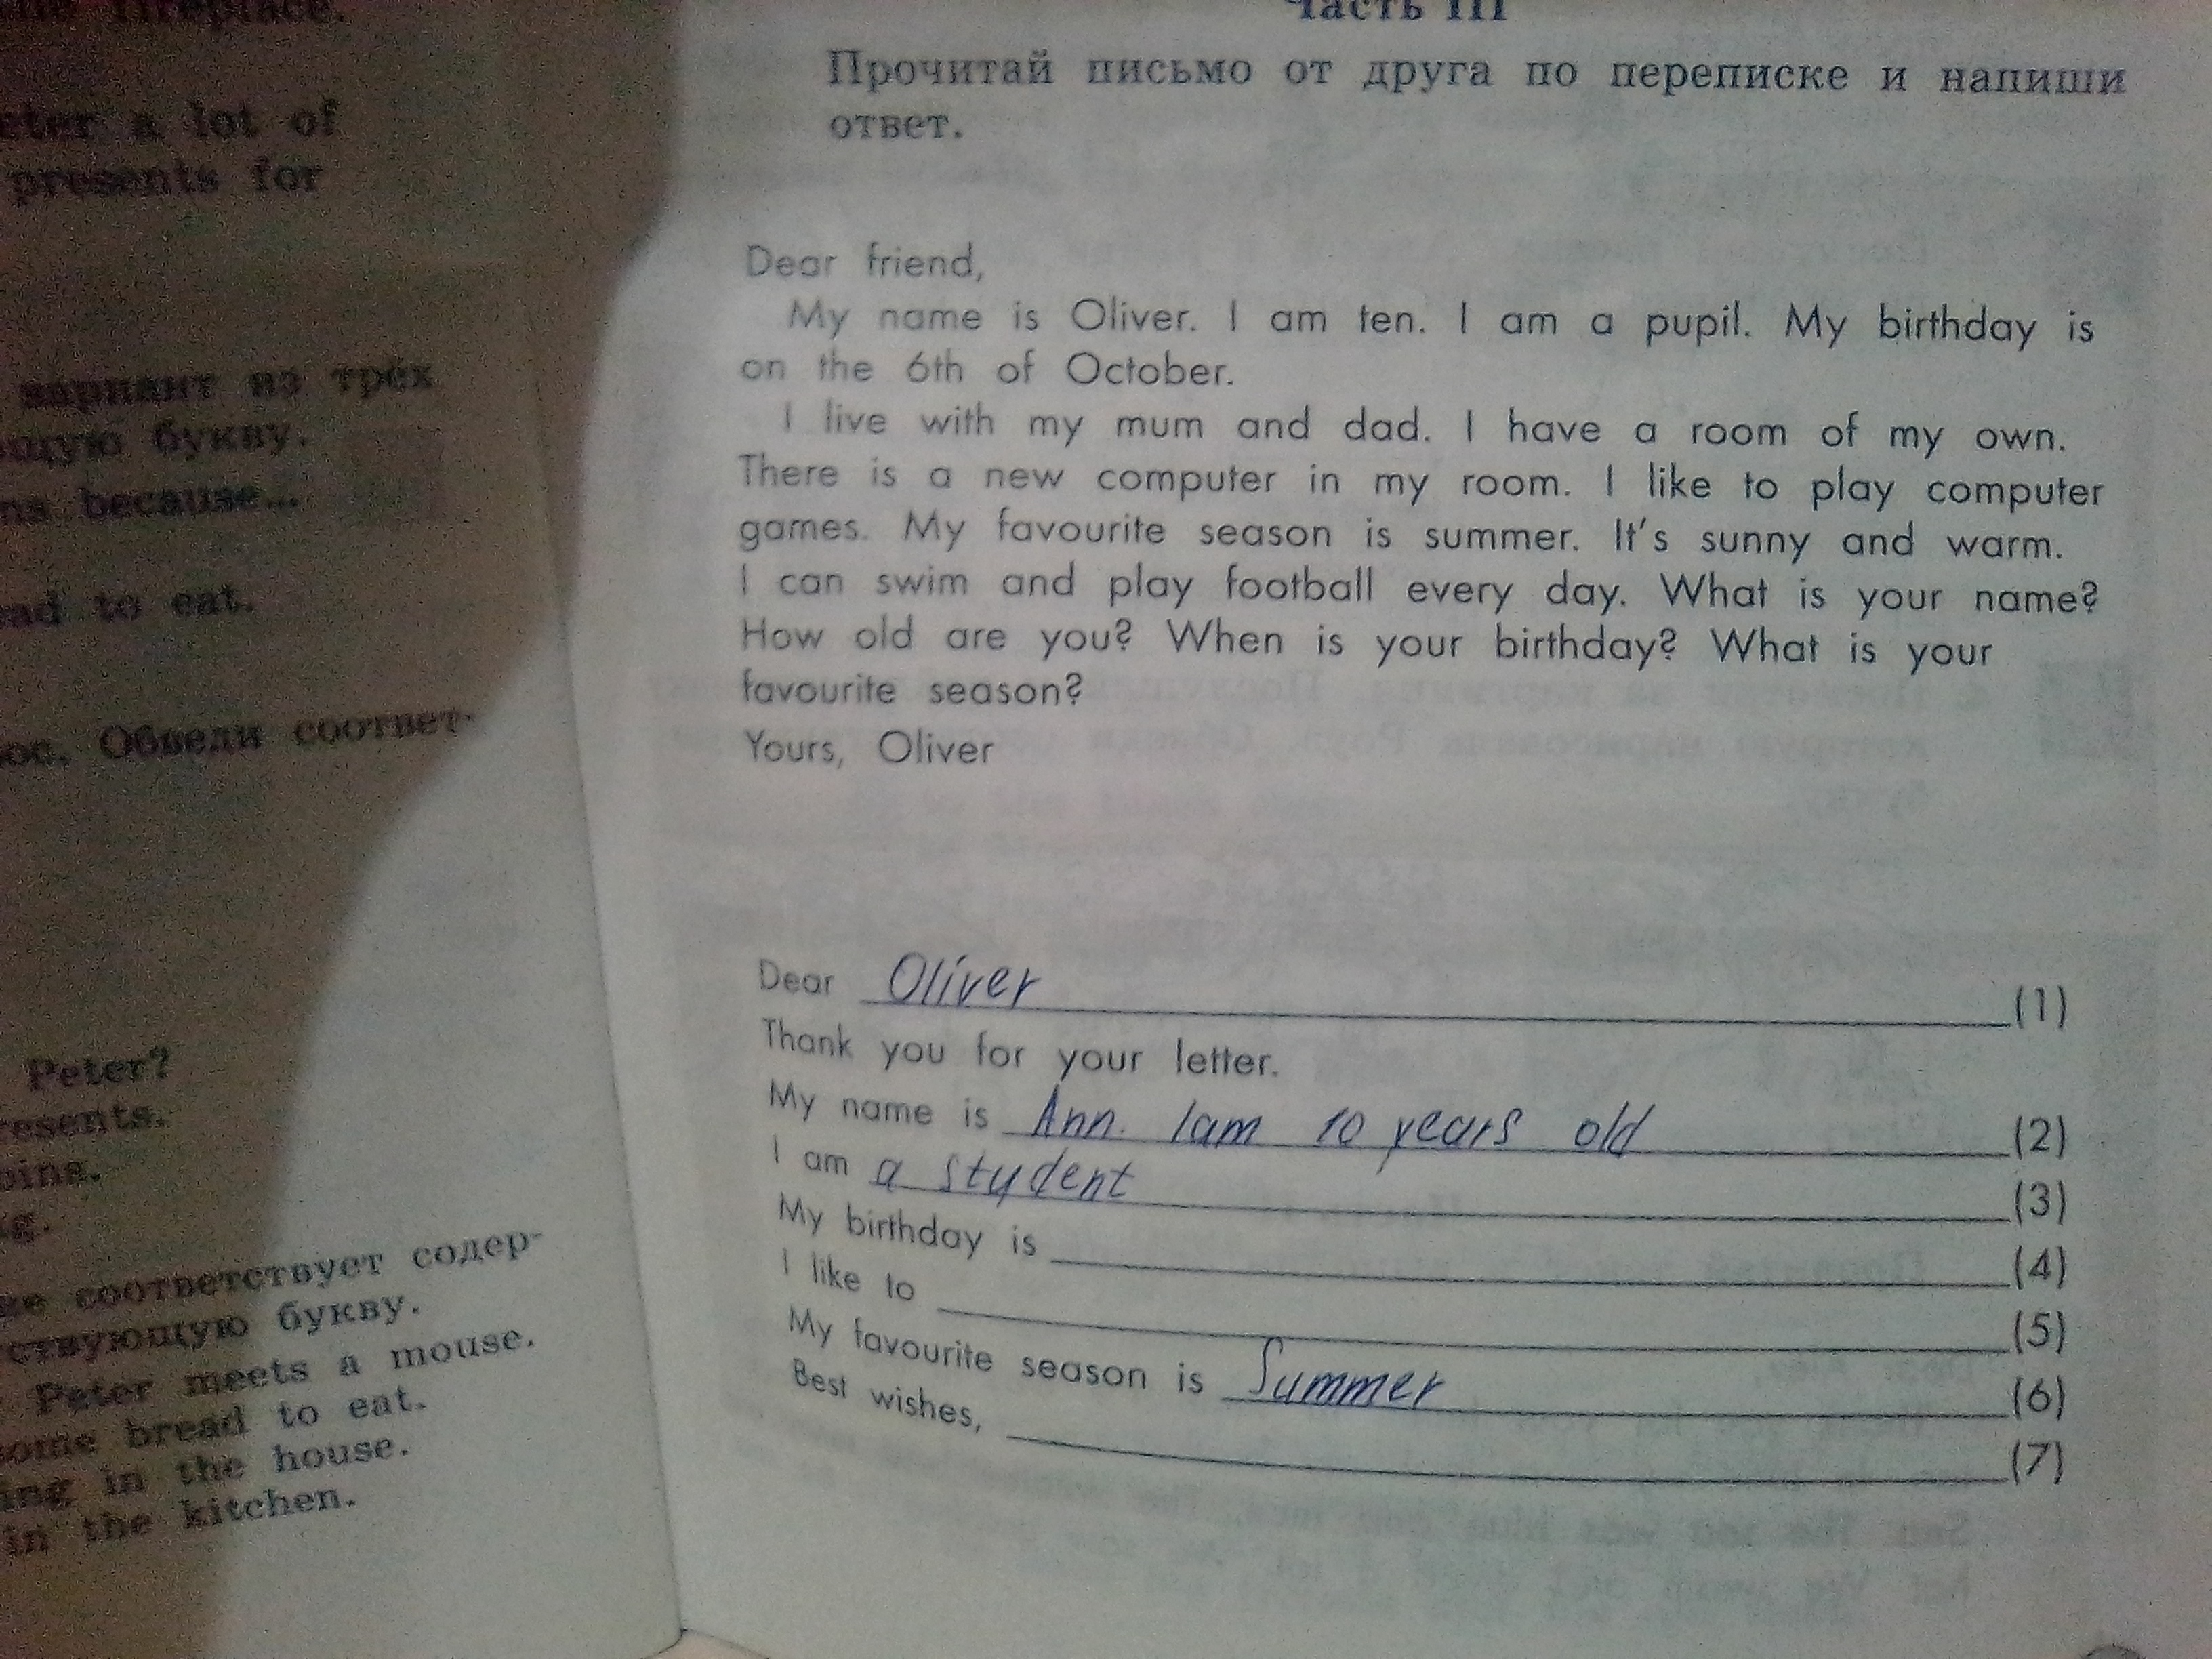 fireplace.
a lot of
presents for
вариант из трёх
букву.
because...
to eat.
Обведи соответ-
Peter?
соответствует содер-
ствующую букву.
Peter meets a mouse.
some bread to eat.
in the house.
in the kitchen.
Часть III
Прочитай письмо от друга по переписке и напиши
ответ.
Dear friend,
My name is Oliver. I am ten. I am a pupil. My birthday is
on the 6th of October.
I live with my mum and dad. I have a room of my own.
There is a new computer in my room. I like to play computer
games. My favourite season is summer. It's sunny and warm.
I can swim and play football every day. What is your name?
How old are you? When is your birthday? What is your
favourite season?
Yours, Oliver
Dear Oliver (1)
Thank you for your letter.
My name is Ann. I am 10 years old (2)
I am a student (3)
My birthday is (4)
I like to (5)
My favourite season is Summer (6)
Best wishes, (7)